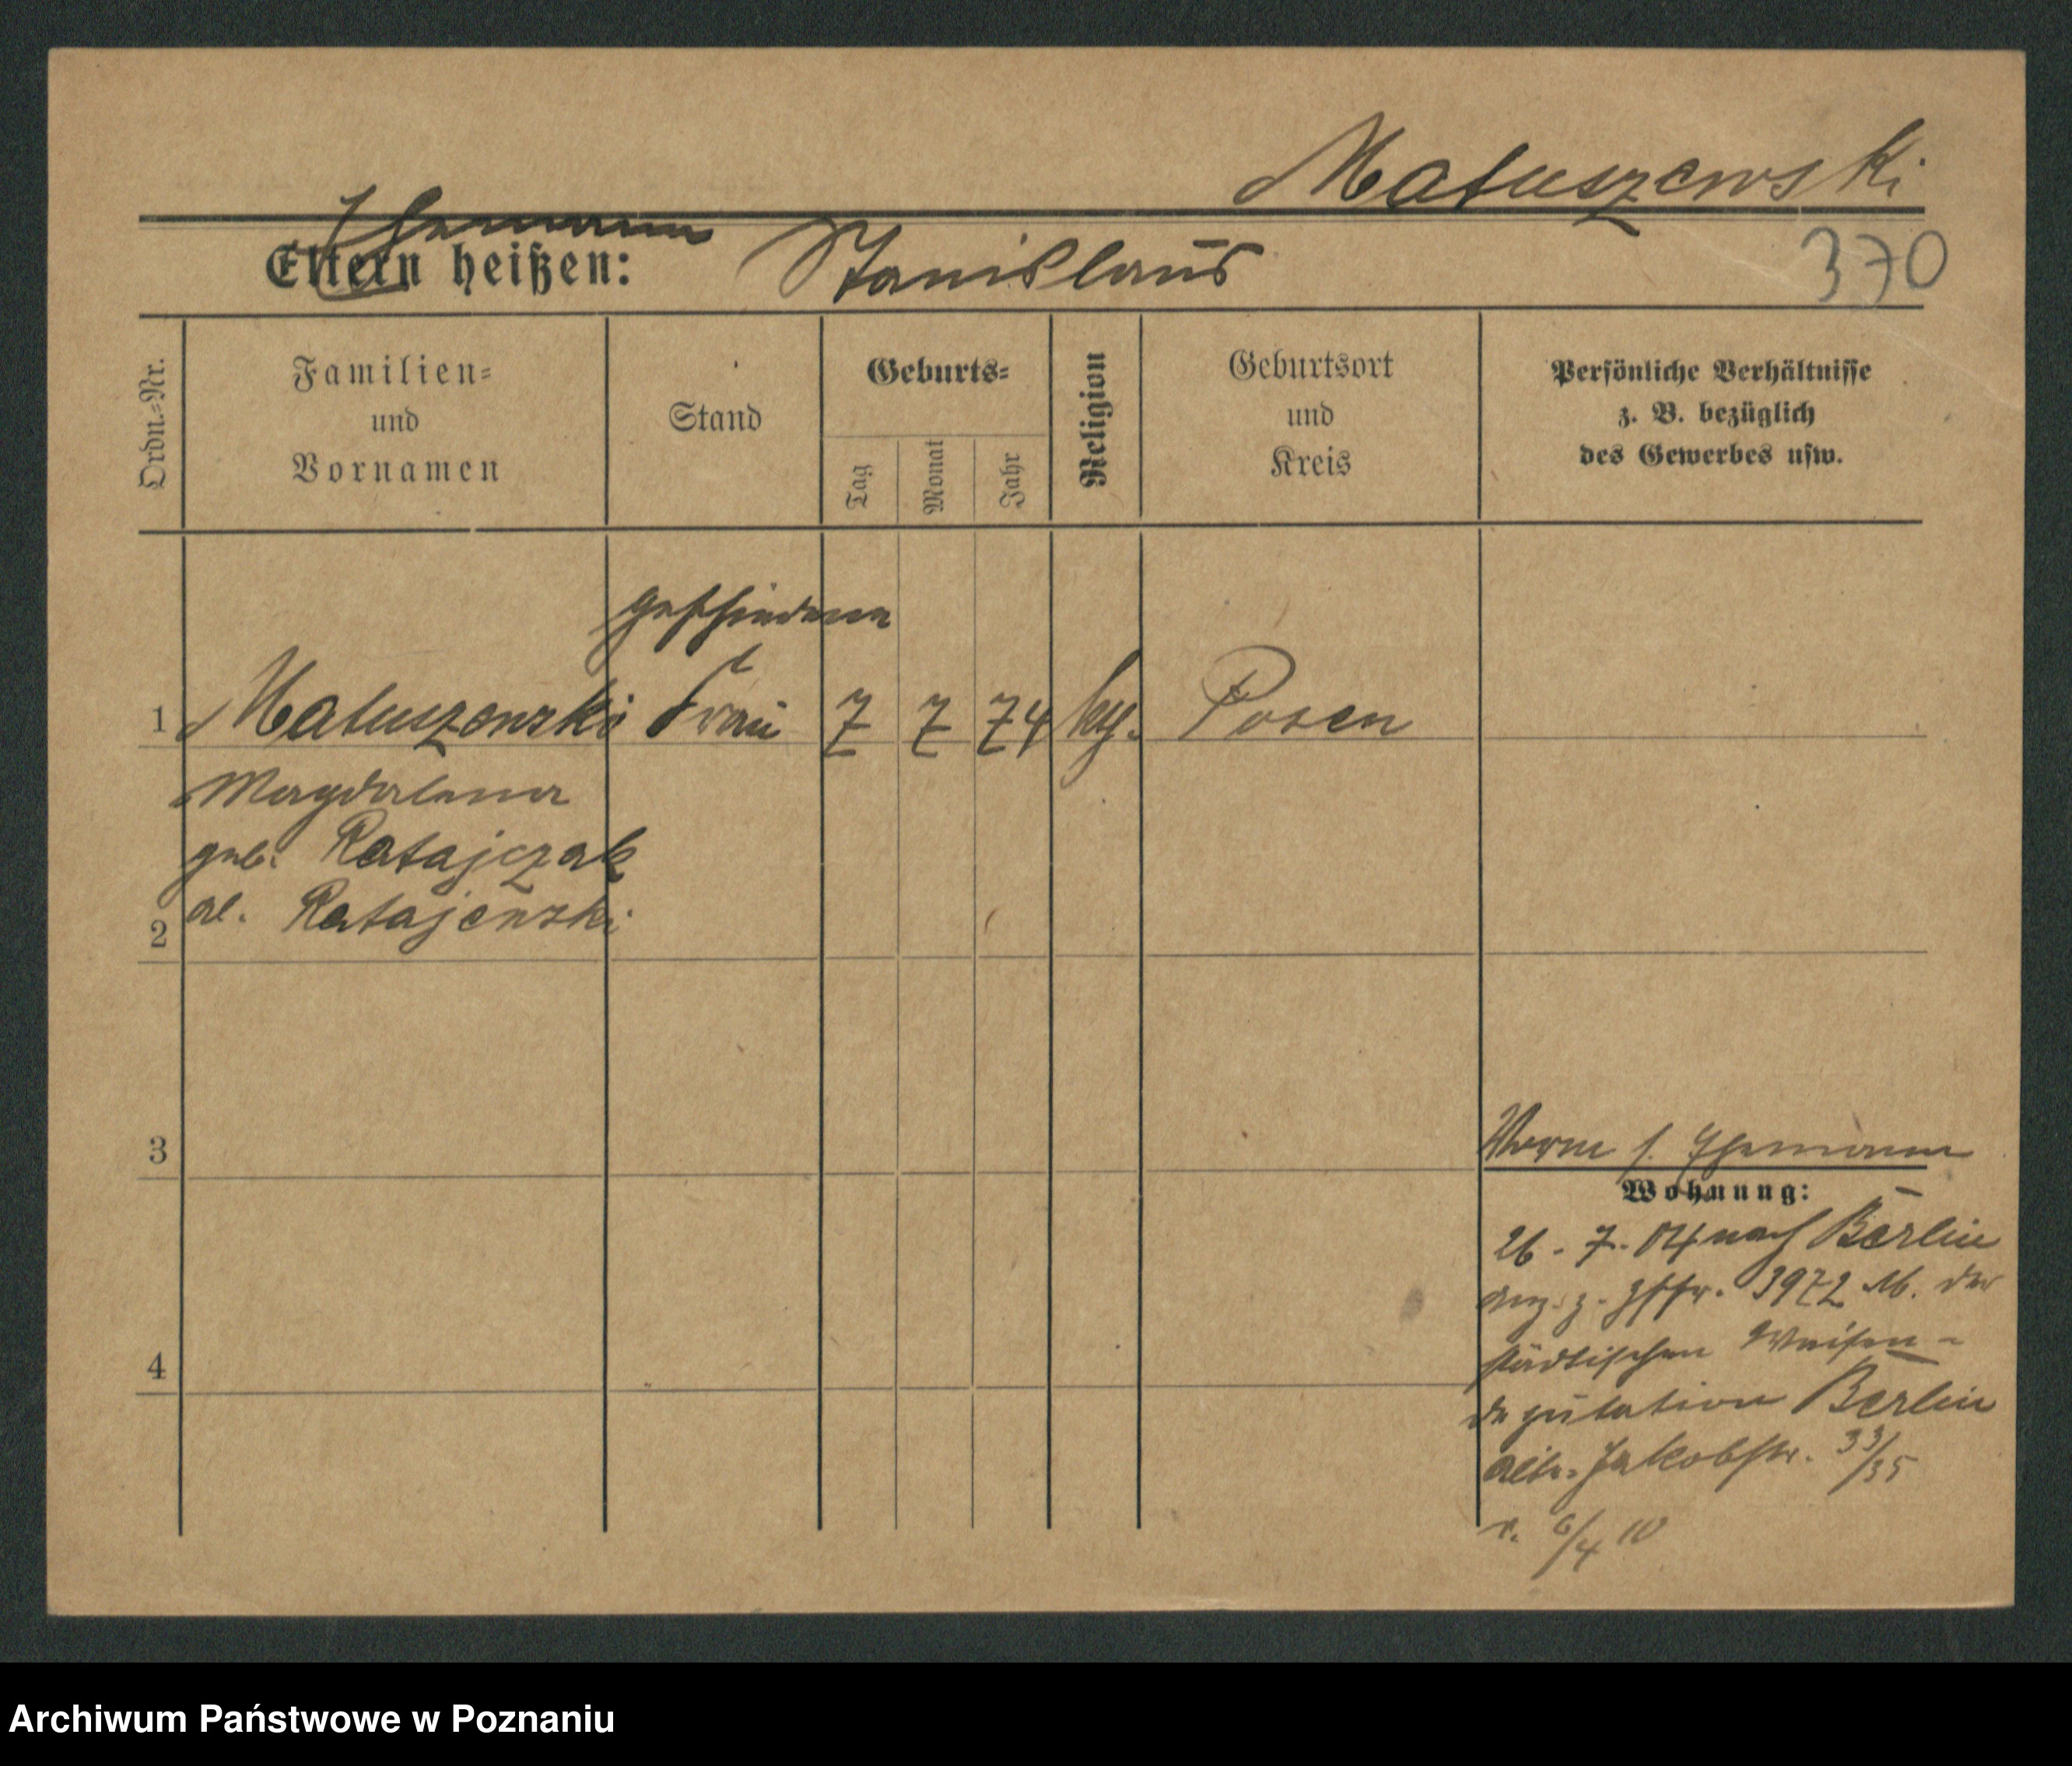 Matuszewski
Ehemann
Eltern heißen: Stanislaus
370
Ordn.-Nr.
Familien-
und
Vornamen
Stand
Geburts-
Tag
Monat
Jahr
Religion
Geburtsort
und
Kreis
Persönliche Verhältnisse
z. B. bezüglich
des Gewerbes usw.
geschiedene
1 Matuszewski Frau 7 7 74 Posen
Magdalena
geb. Ratajczak
2 al. Ratajewski
3
s. Ehemann
Wohnung:
26. 7. 04 nach Berlin
3972 M. der
4 städtischen Waisen-
deputation Berlin
Alte-Jakobstr. 33/35
6/4 10
Archiwum Państwowe w Poznaniu